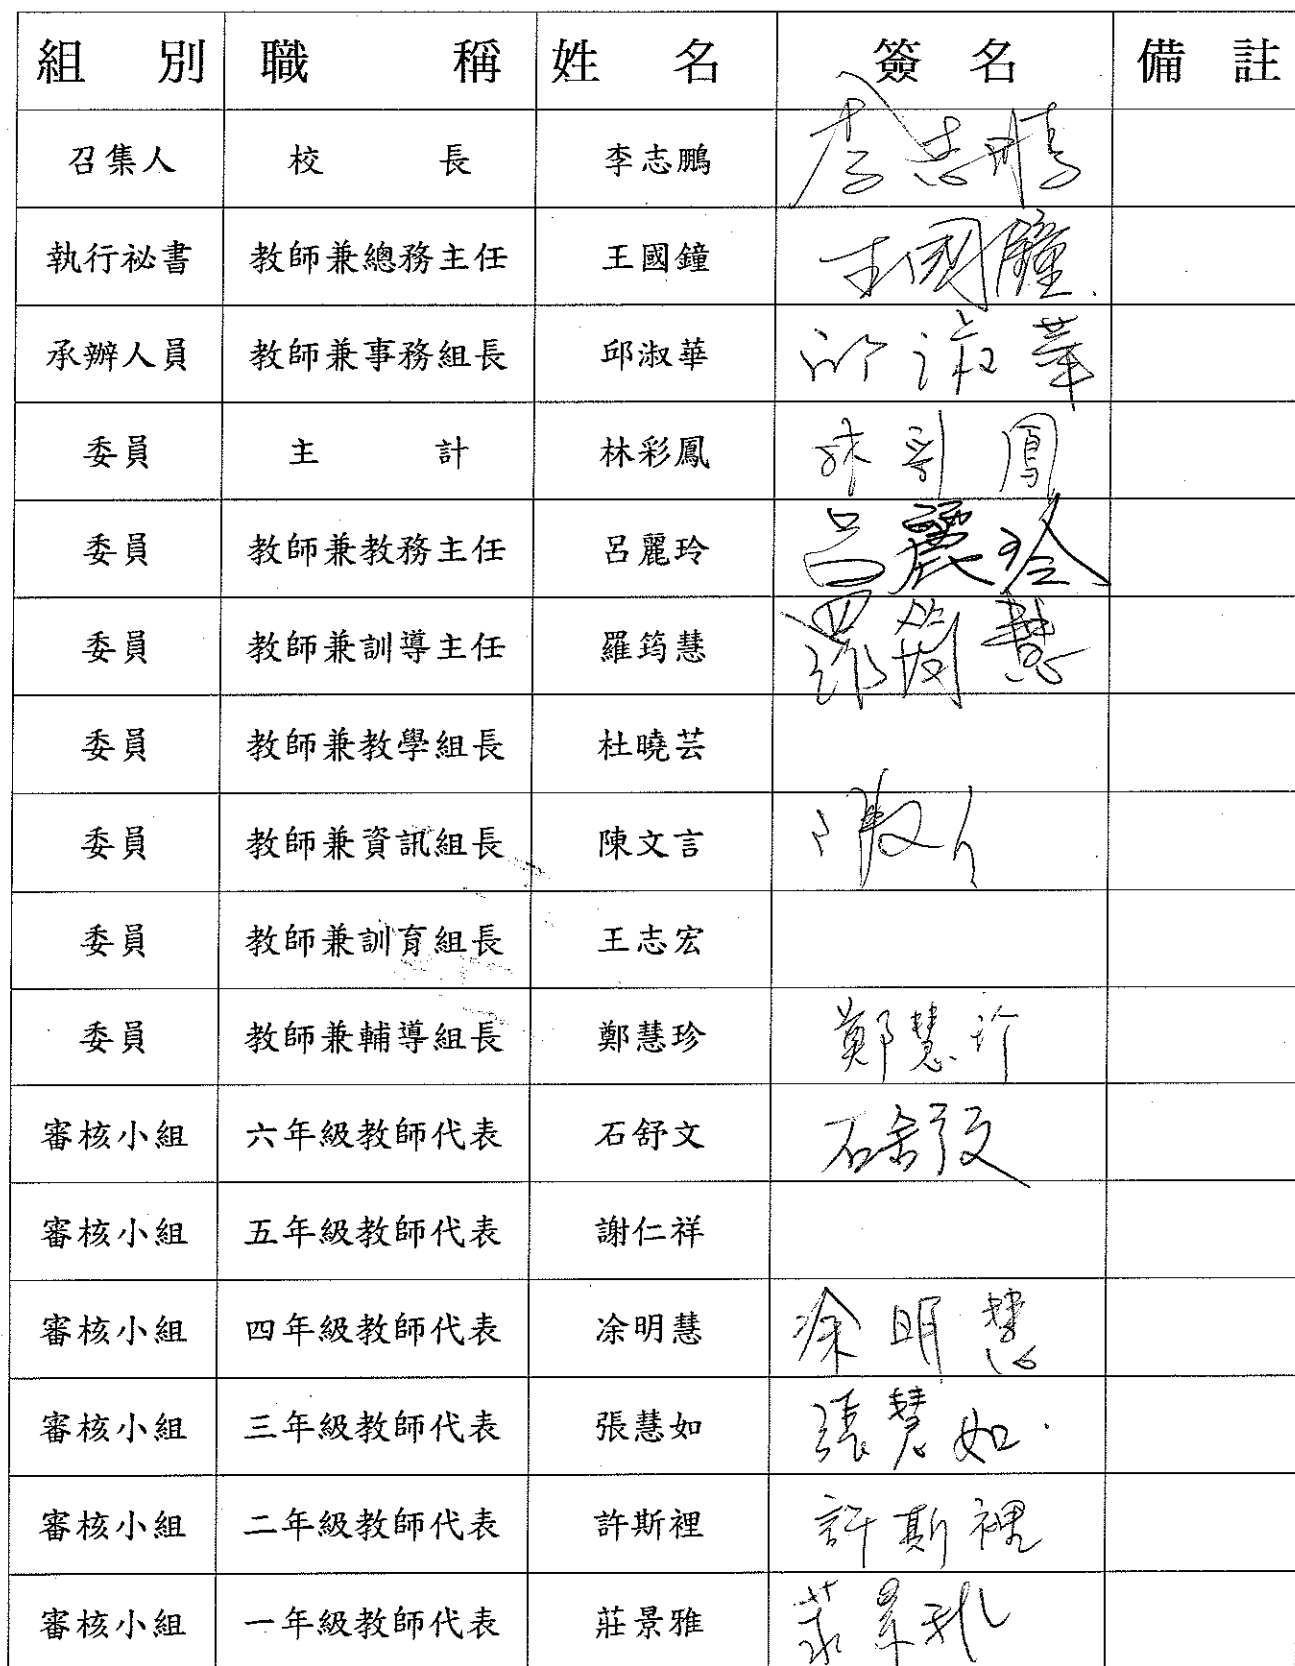 組別 職稱 姓名 簽名 備註
召集人 校長 李志鵬 李志鵬
執行祕書 教師兼總務主任 王國鐘 王國鐘
承辦人員 教師兼事務組長 邱淑華 邱淑華
委員 主計 林彩鳳 林彩鳳
委員 教師兼教務主任 呂麗玲 呂麗玲
委員 教師兼訓導主任 羅筠慧 羅筠慧
委員 教師兼教學組長 杜曉芸
委員 教師兼資訊組長 陳文言 陳文言
委員 教師兼訓育組長 王志宏
委員 教師兼輔導組長 鄭慧珍 鄭慧珍
審核小組 六年級教師代表 石舒文 石舒文
審核小組 五年級教師代表 謝仁祥
審核小組 四年級教師代表 凃明慧 涂明慧
審核小組 三年級教師代表 張慧如 張慧如
審核小組 二年級教師代表 許斯裡 許斯裡
審核小組 一年級教師代表 莊景雅 莊景雅